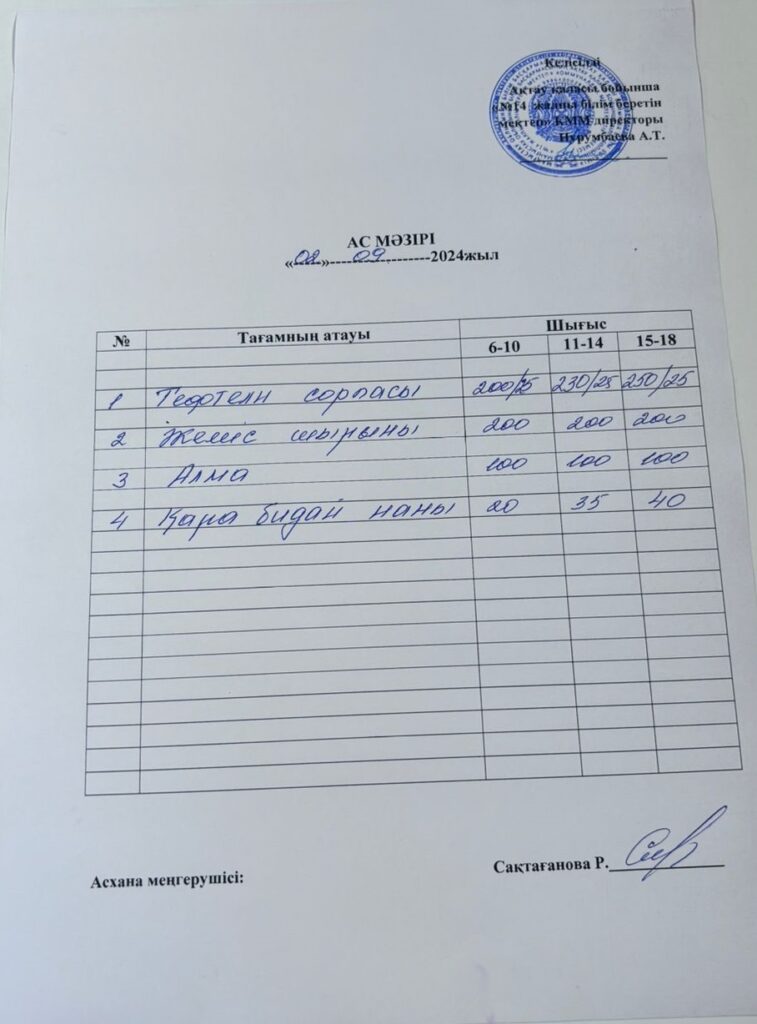 Келісілді
Ақтау қаласы бойынша
«№14 жалпы білім беретін
мектеп» КММ директоры
Нурумбаева А.Т.
АС МӘЗІРІ
«02»----09----2024жыл
№ Тағамның атауы Шығыс
6-10 11-14 15-18
1 Тефтели сорпасы 200/25 230/25 250/25
2 Жеміс шырыны 200 200 200
3 Алма 100 100 100
4 Қара бидай наны 20 35 40
Асхана меңгерушісі: Сақтағанова Р.